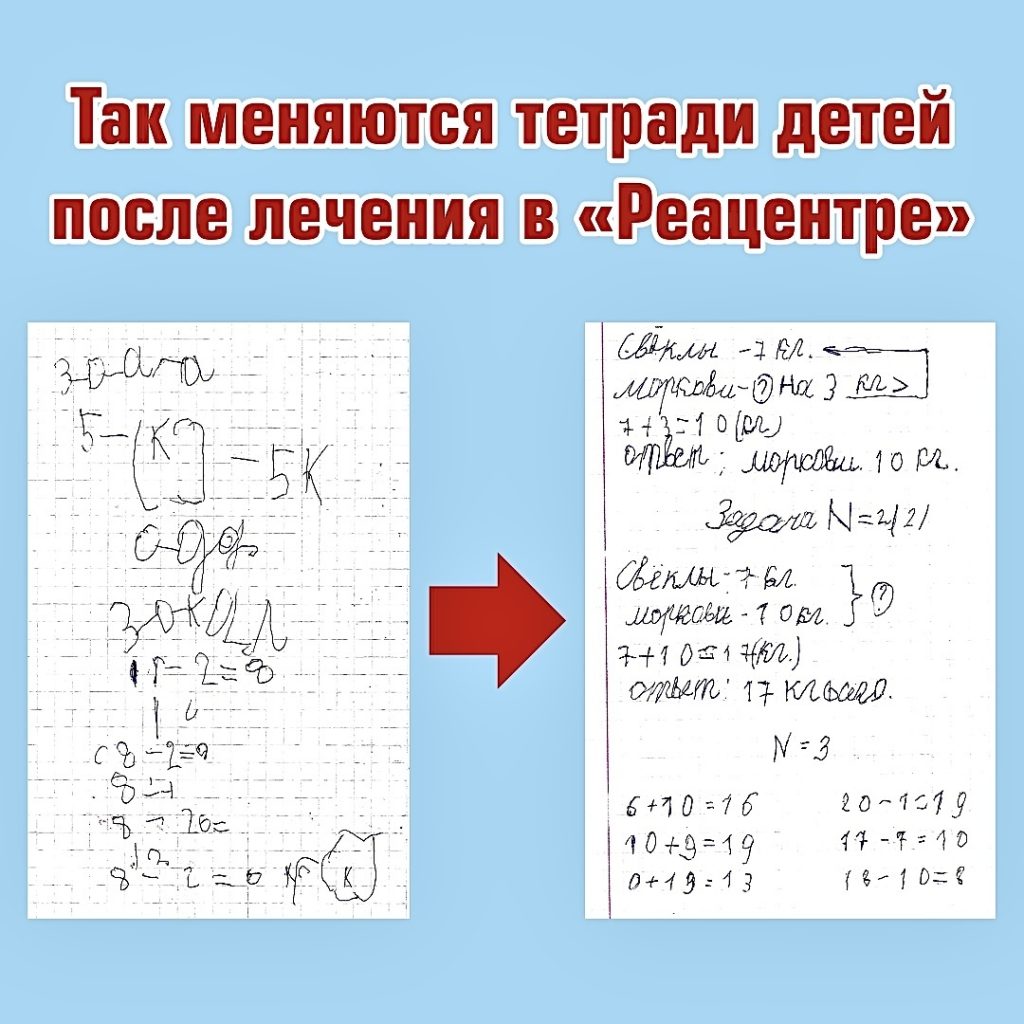 Так меняются тетради детей
после лечения в «Реацентре»
5 – (К] – 5К
– 2 = 8
8 – 2 =
8 –
8 – 20 =
8 – 2 = 6
К
Свёклы – 7 кг.
моркови – ? на 3 кг >
7 + 3 = 10 (кг)
ответ ; моркови. 10 кг.
Задача N = 2/2/
Свёклы – 7 кг.
моркови – 10 кг. } ?
7 + 10 = 17 (кг.)
ответ: 17 кг всего.
N = 3
6 + 10 = 16 20 – 1 = 19
10 + 9 = 19 17 – 7 = 10
0 + 13 = 13 18 – 10 = 8